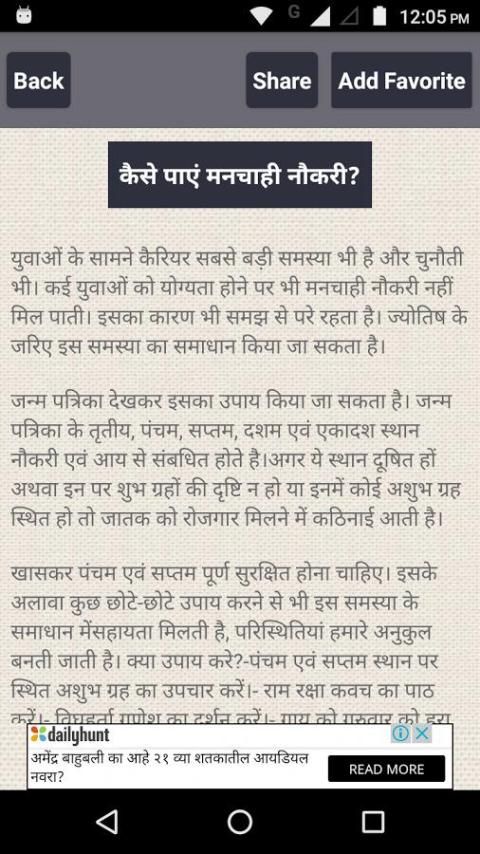 G
12:05 PM
Back
Share
Add Favorite
कैसे पाएं मनचाही नौकरी?
युवाओं के सामने कैरियर सबसे बड़ी समस्या भी है और चुनौती
भी। कई युवाओं को योग्यता होने पर भी मनचाही नौकरी नहीं
मिल पाती। इसका कारण भी समझ से परे रहता है। ज्योतिष के
जरिए इस समस्या का समाधान किया जा सकता है।
जन्म पत्रिका देखकर इसका उपाय किया जा सकता है। जन्म
पत्रिका के तृतीय, पंचम, सप्तम, दशम एवं एकादश स्थान
नौकरी एवं आय से संबधित होते है।अगर ये स्थान दूषित हों
अथवा इन पर शुभ ग्रहों की दृष्टि न हो या इनमें कोई अशुभ ग्रह
स्थित हो तो जातक को रोजगार मिलने में कठिनाई आती है।
खासकर पंचम एवं सप्तम पूर्ण सुरक्षित होना चाहिए। इसके
अलावा कुछ छोटे-छोटे उपाय करने से भी इस समस्या के
समाधान मेंसहायता मिलती है, परिस्थितियां हमारे अनुकुल
बनती जाती है। क्या उपाय करे?-पंचम एवं सप्तम स्थान पर
स्थित अशुभ ग्रह का उपचार करें।- राम रक्षा कवच का पाठ
करें।- विघ्नहर्ता गणेश का दर्शन करें।- गाय को गुरुवार को हरा
dailyhunt
अमेंद्र बाहुबली का आहे २१ व्या शतकातील आयडियल
नवरा?
READ MORE